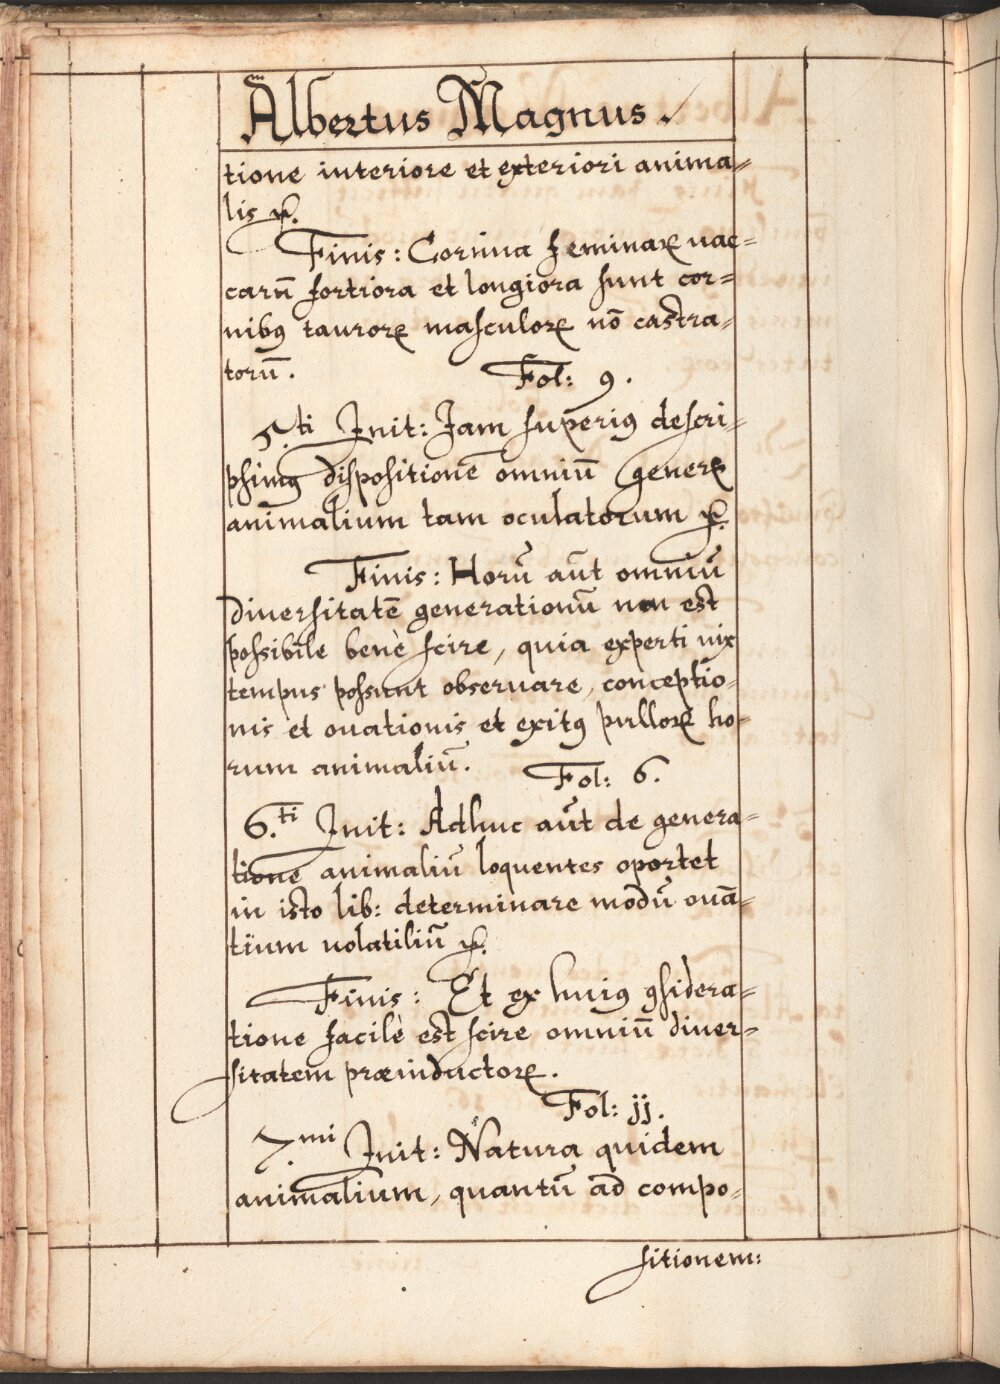 Albertus Magnus.
tione interiore et exteriori anima=
lis ꝛc.
Finis: Cornua feminaꝝ uac=
carū fortiora et longiora sunt cor=
nibꝰ tauroꝝ masculoꝝ nō castra=
torū.
Fol: 9.
5.ti Init: Jam superiꝰ descri=
psimꝰ dispositionē omniū generꝝ
animalium tam oculatorum ꝛc.
Finis: Horū aūt omniū
diuersitatē generationū non est
possibile benè scire, quia experti uix
tempus possunt obseruare, conceptio=
nis et ouationis et exitꝰ pulloꝝ ho=
rum animaliū.
Fol: 6.
6.ti Init: Adhuc aūt de genera=
tione animaliū loquentes oportet
in isto lib: determinare modū ouā=
tium uolatiliū ꝛc.
Finis: Et ex huiꝰ ꝯsidera=
tione facilè est scire omniū diuer=
sitatem præinductoꝝ.
Fol: jj.
7.mi Init: Natura quidem
animalium, quantū ad compo=
sitionem: